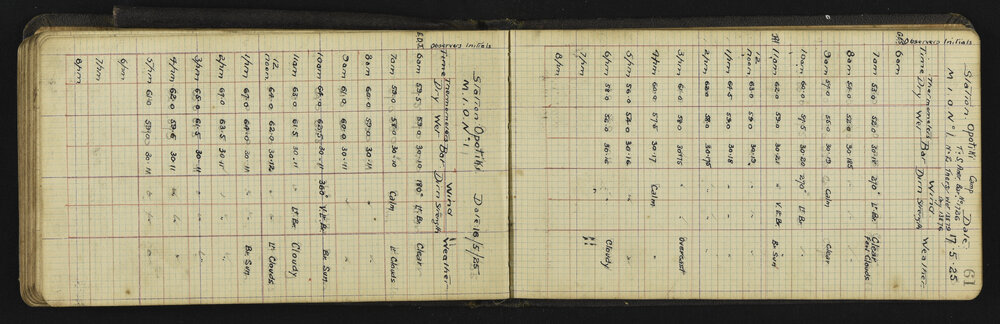 61
Station Opotiki Camp Date 17.5.25
M.I.O No 1
Observers Initials
Time Thermometer Dry Wet Bar Wind Dirn Strength Weather
6am
7am 53.0 52.0 30.18 270° Lt Br. Clear few Clouds
8am 52.0 30.185 " "
9am 59.0 55.0 30.19 " Calm Clear
10am 60.0 57.5 30.20 270° Lt Br.
11am 62.0 59.0 30.21 " V.E.Br Br. Sun
12 noon 63.0 59.0 30.19 " "
1pm 64.5 59.0 30.18 " "
2pm 62.0 58.0 30.175 " "
3pm 61.0 58.0 30.175 " " Overcast
4pm 60.0 57.5 30.17 Calm "
5pm 58.0 30.16 " "
6pm 56.0 30.16 " Cloudy
7pm " "
8pm
Station Opotiki Date 18/5/25
M.I.O. No 1
Observers Initials
Time Thermometer Dry Wet Bar Wind Dirn Strength Weather
6am 53.5 53.0 30.10 180° Lt Br. Clear
7am 59.0 58.0 30.10 Calm Lt Clouds
8am 60.0 59.0 30.11 " "
9am 61.0 60.0 30.11 " "
10am 64.0 30.11 360° V.E.Br Br Sun
11am 63.0 61.5 30.11 Lt Br. Cloudy
12 noon 64.0 62.0 30.12 " " Lt Clouds
1pm 30.11 " " Br. Sun
2pm 63.5 30.11 " "
3pm 65.0 61.5 30.11 " "
4pm 62.0 59.5 30.11 " "
5pm 61.0 30.11 " "
6pm
7pm
8pm